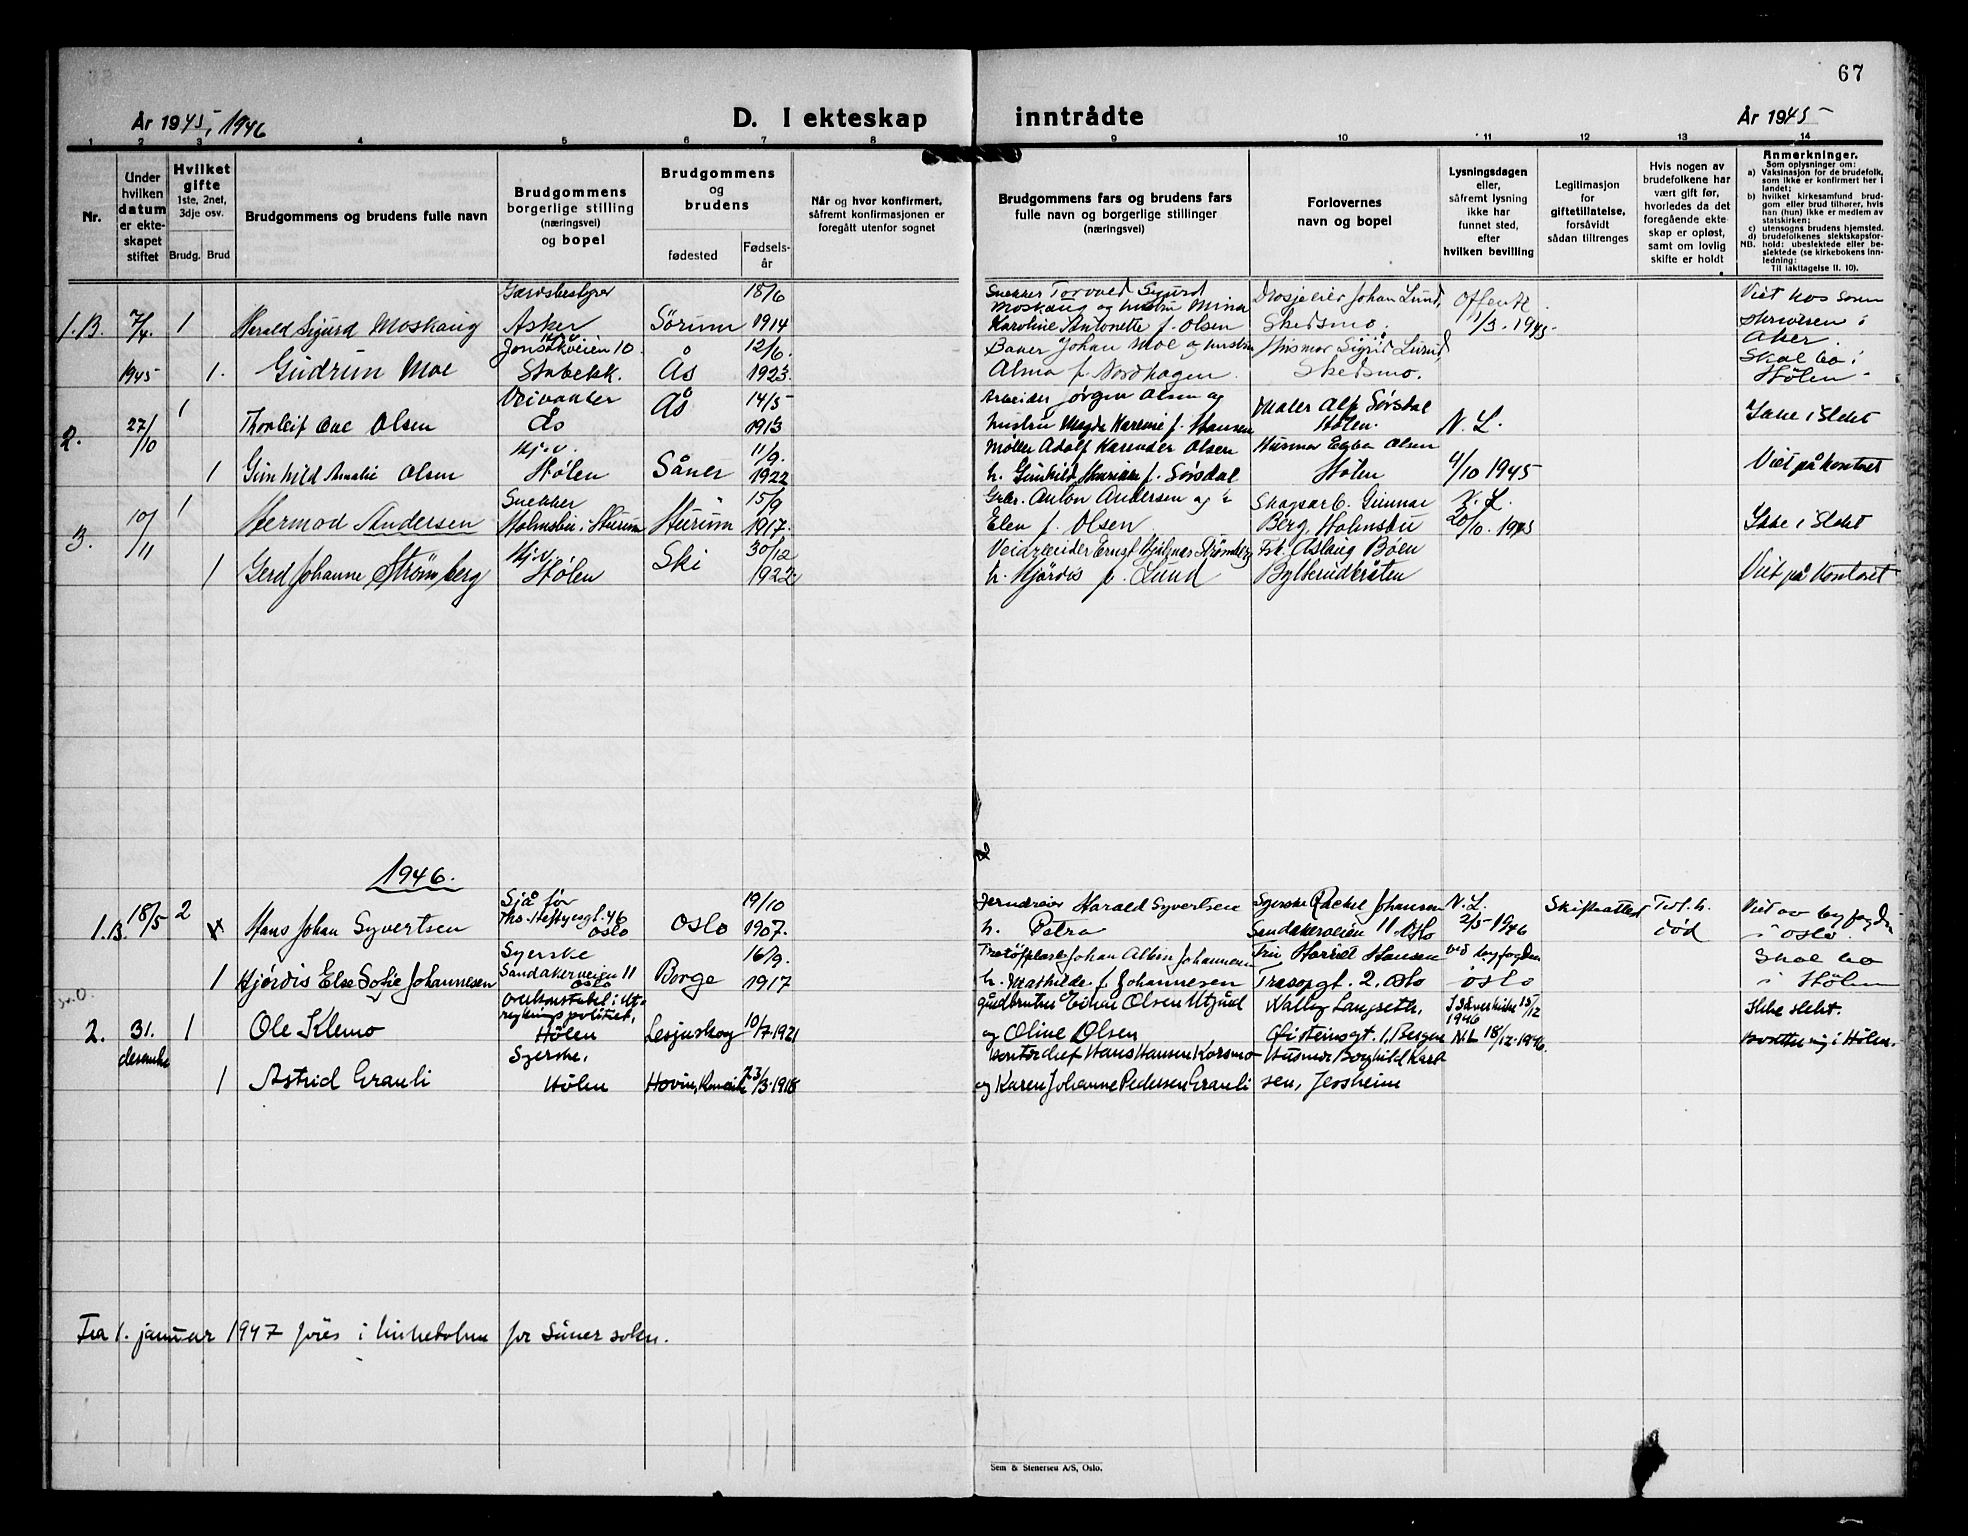 67
År 1945, 1946
D. I ekteskap inntrådte
År 1945
1 2 3 4 5 6 7 8 9 10 11 12 13 14
Nr.
Under
hvilken
datum
er ekte-
skapet
stiftet
Hvilket
gifte
1ste, 2net,
3dje osv.
Brudg. Brud
Brudgommens og brudens fulle navn
Brudgommens
borgerlige stilling
(næringsvei)
og bopel
Brudgommens
og
brudens
fødested
Fødsels-
år
Når og hvor konfirmert,
såfremt konfirmasjonen er
foregått utenfor sognet
Brudgommens fars og brudens fars
fulle navn og borgerlige stillinger
(næringsvei)
Forlovernes
navn og bopel
Lysningsdagen
eller,
såfremt lysning
ikke har
funnet sted,
efter
hvilken bevilling
Legitimasjon
for
giftetillatelse,
forsåvidt
sådan tiltrenges
Hvis nogen av
brudefolkene har
vært gift før,
hvorledes da det
foregående ekte-
skap er opløst,
samt om lovlig
skifte er holdt
Anmerkninger.
Som oplysninger om:
a) Vaksinasjon for de brudefolk,
som ikke er konfirmert her i
landet;
b) hvilket kirkesamfund brud-
gom eller brud tilhører, hvis
han (hun) ikke er medlem av
statskirken;
c) utensogns brudens hjemsted.
d) brudefolkenes slektskapsfor-
NB. hold: ubeslektede eller be-
slektede (se kirkebokens inn-
ledning:
Til iakttagelse II. 10).
1.B. 7/4 1945 1
Harald Sigurd Moskaug
Asker
Sörum
18/6
1914
Snekker Torvald Sigurd
Moskaug og hustru Mina
Karoline Antonette f. Olsen
Drosjeeier Johan Lund,
Skedsmo.
Offentl.
1/3. 1945.
Viet hos soren
skriveren i
Aker.
Skal bo i
Hölen.
1.
Gudrun Moe
Jonsokveien 10
Stabekk.
Ås
12/6.
1923.
Baner Johan Moe og hustru
Alma f. Nordhagen.
Husmor Sigrid Lund
Skedsmo.
2. 27/10 1
Thorleif Olsen
Veivokter
Ås
Ås
14/5
1913
Arbeider Jørgen Olsen og
hustru Magda Karenie f. Hansen
Maler Alf Sørsdal
Hölen.
N. L.
Ikke i slekt
1
Gunhild Amalie Olsen
Hjv.
Hølen
Såner
11/9.
1922
Møller Adolf Karender Olsen
h. Gunhild f. Sørsdal
Husmor Olsen
Hölen
4/10 1945
Viet på kontoret
3. 10/11 1
Hermod Andersen
Snekker
Holmsbu i Hurum
Hurum
15/9
1917.
Anton Andersen og h
Elen f. Olsen
Skogsarb. Gunnar
Berg, Holmsbu
N. L.
20/10. 1945
Ikke i slekt
1
Gerd Johanne Strömberg
Hjv.
Hölen
Ski
30/12
1922.
Veiarbeider Ernst Hjalmar Strømberg
h. Hjördis f. Lund
Frk. Aslaug Böen
Bylterudbråten
Viet på kontoret
1946.
1.B. 18/5 2
Hans Johan Syvertsen
Sjåfør
Ths. Heftyesgt. 46
Oslo
Oslo
19/10
1907.
Jerndreier Harald Syvertsen
h. Petra
Syerske Rachel Johansen
Sandakerveien 11 Oslo
N. L.
2/5 1946
ved byfogden
i Oslo
Skifteattest
Tidl. h.
död
Viet av byfogden
i Oslo.
Skal bo
i Hölen
1
Hjördis Else Sofie Johannesen
Syerske
Sandakerveien 11
Oslo
Borge
16/9.
1917
Johan Albin Johannesen
h. Mathilde f. Johannesen
Fru Harriet Hansen
2, Oslo
2. 31. desember 1
Ole Klemo
overkonstabel i Ut-
rykningspolitiet,
Hölen
Lesjaskog
10/7.1921
gårdbruker Einar Olsen Utgård
og Oline Olsen
Valborg Langseth,
Øisteinsgt. 1, Bergen
I Såner kirke 15/12
1946
N.L 18/12.1946.
Ikke slekt.
Bosetter seg i Hölen.
1
Astrid Granli
Syerske,
Hölen
23/3.1918
kontorchef Hans Hansen Korsmo
og Karen Johanne Pedersen Granli
Husmor Borghild Karl
sen, Jessheim
Fra 1. januar 1947 føres i kirkeboken for Såner sokn.
Sem & Stenersen A/S, Oslo.